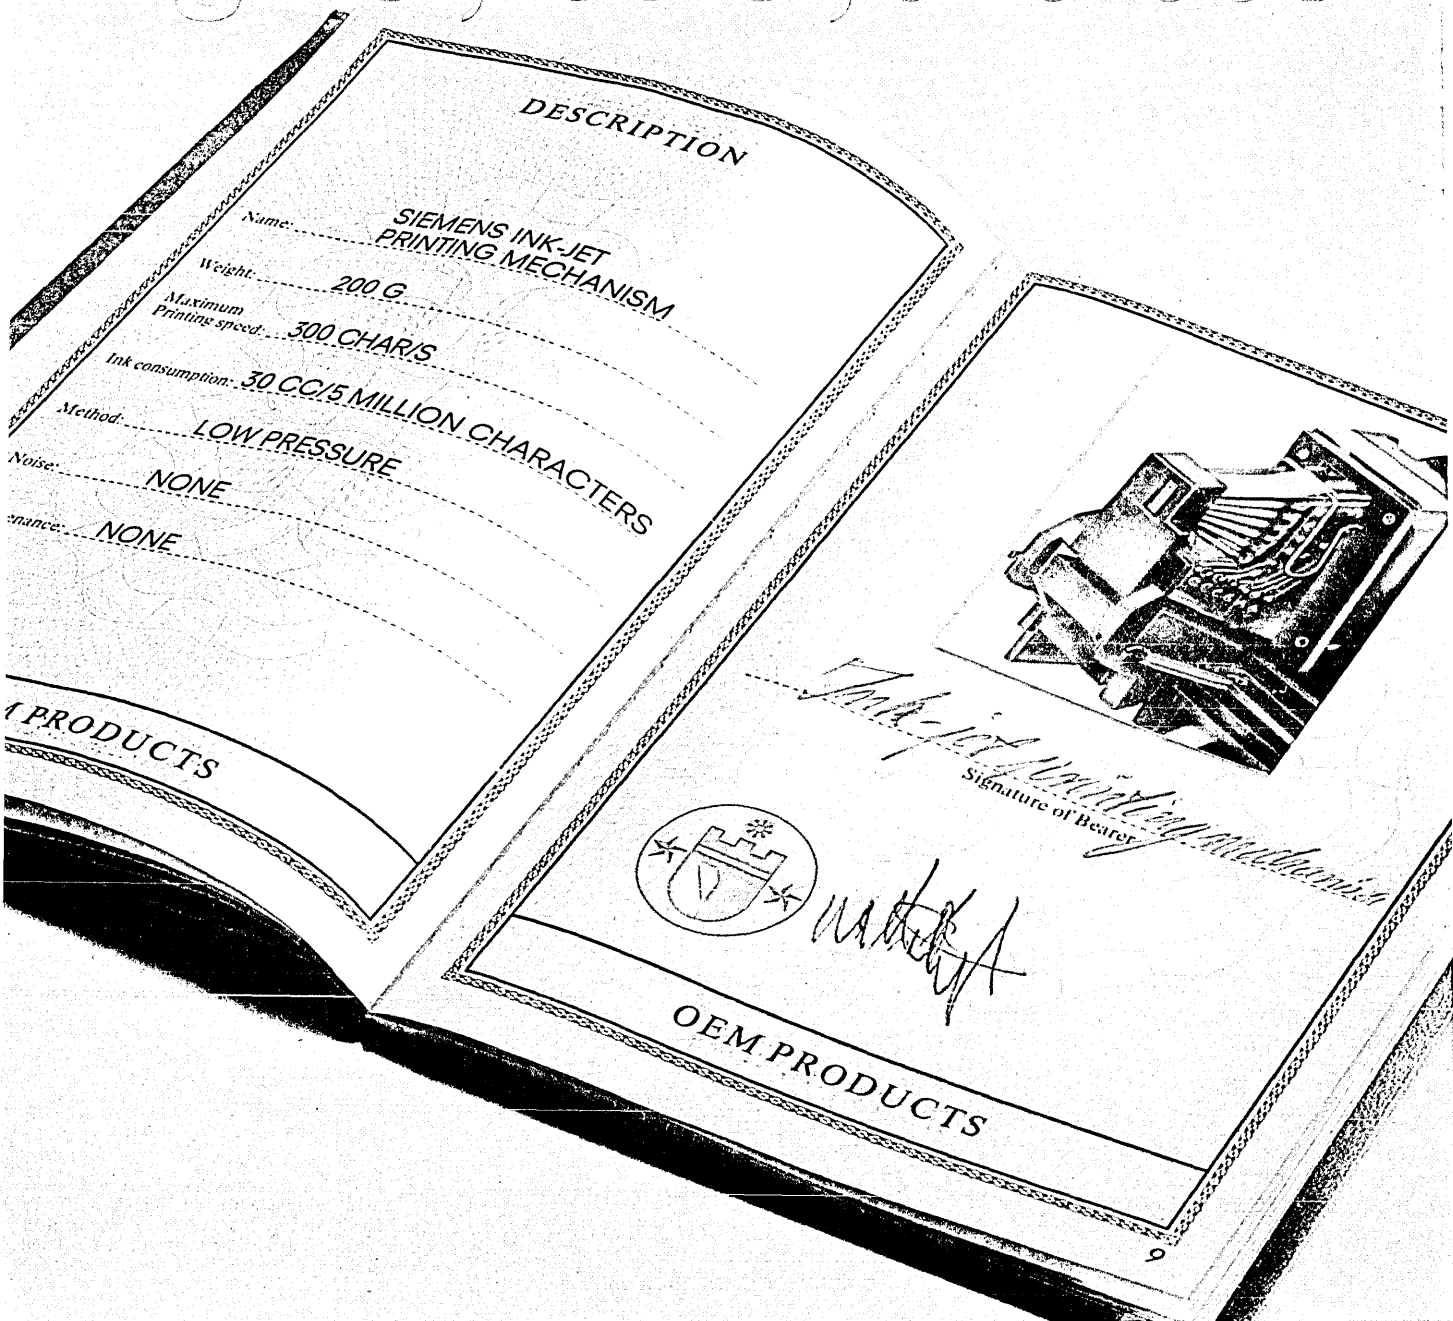 DESCRIPTION
Name: SIEMENS INK-JET
PRINTING MECHANISM
Weight: 200 G
Maximum
Printing speed: 300 CHAR/S
Ink consumption: 30 CC/5 MILLION CHARACTERS
Method: LOW PRESSURE
Noise: NONE
enance: NONE
M PRODUCTS
Ink-jet printing mechanism
Signature of Bearer
OEM PRODUCTS
9